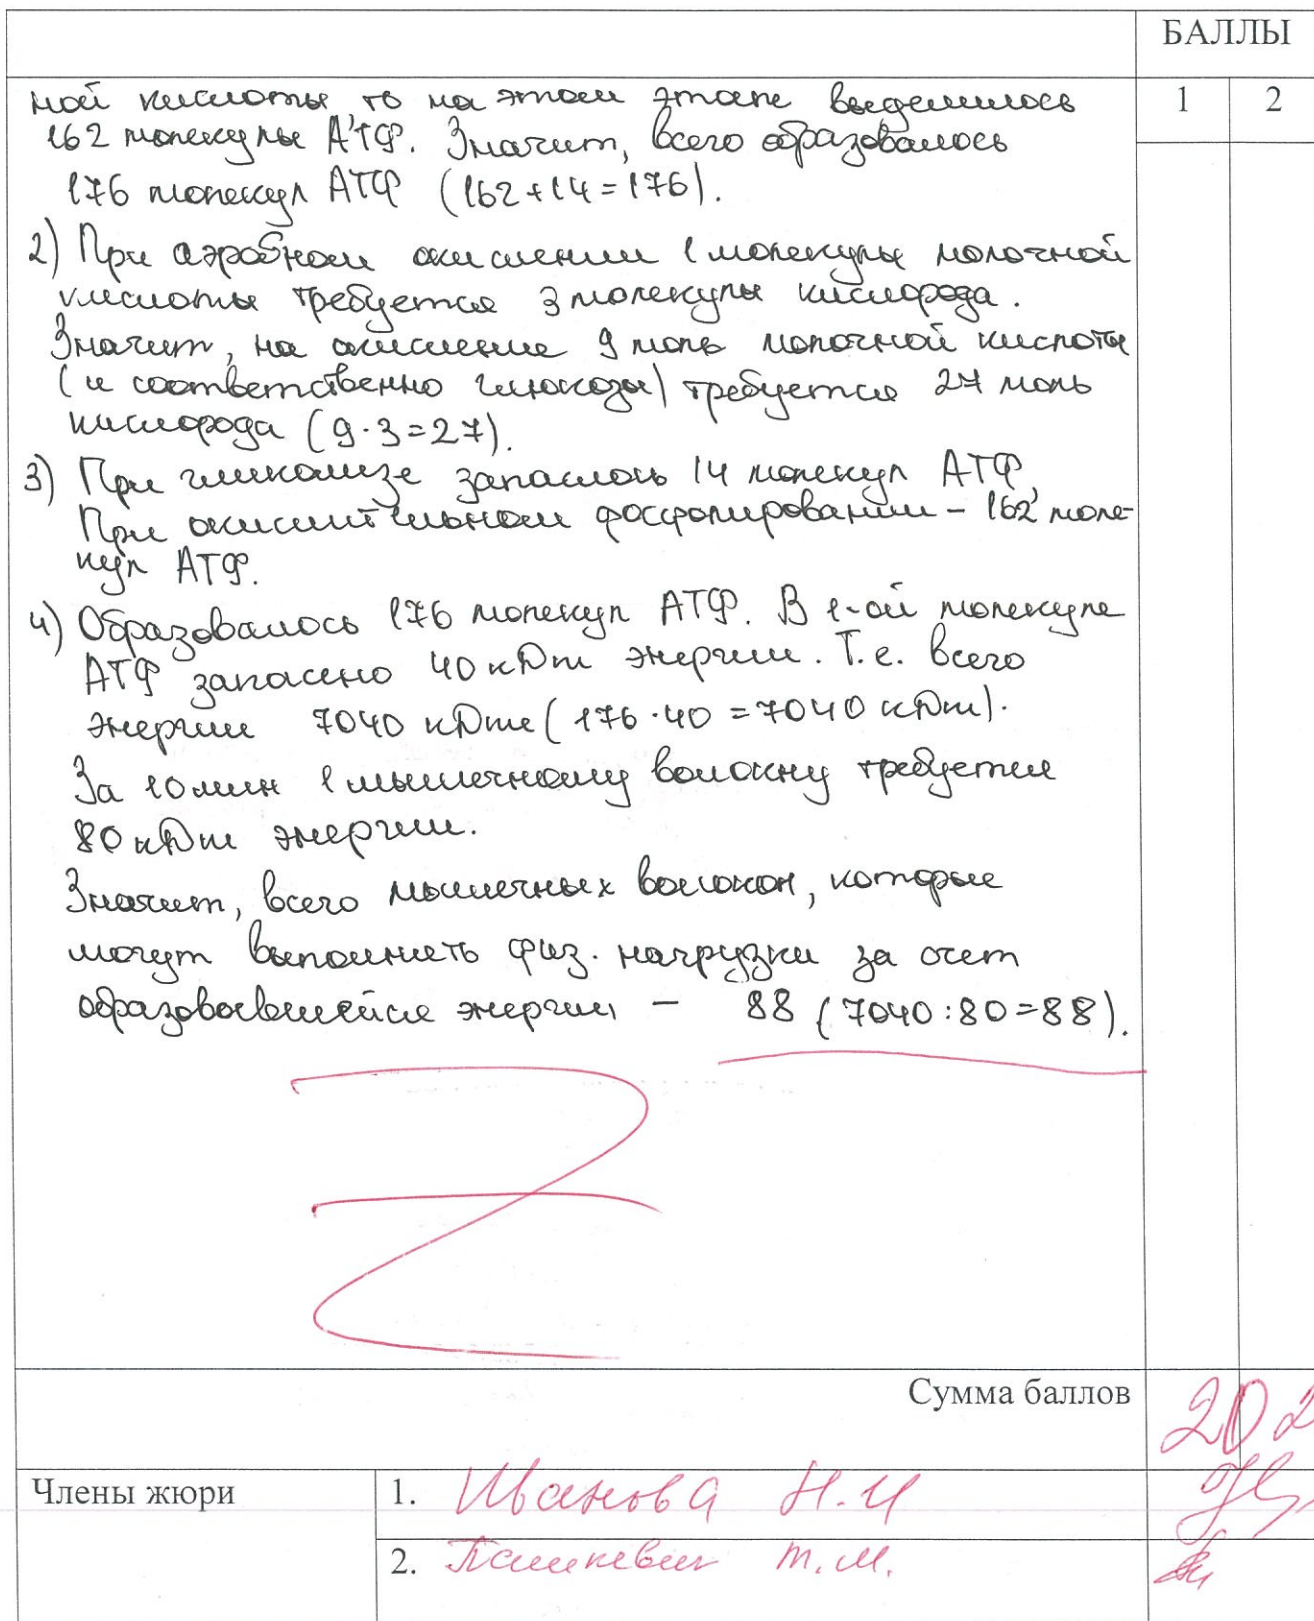 БАЛЛЫ
1 2
ной кислоты то на этом этапе выделилось
162 молекулы АТФ. Значит, всего образовалось
176 молекул АТФ (162+14=176).
2) При аэробном окислении 1 молекулы молочной
кислоты требуется 3 молекулы кислорода.
Значит, на окисление 9 моль молочной кислоты
(и соответственно глюкозы) требуется 27 моль
кислорода (9·3=27).
3) При гликолизе запаслось 14 молекул АТФ,
При окислительном фосфолировании – 162 моле-
кул АТФ.
4) Образовалось 176 молекул АТФ. В 1-ой молекуле
АТФ запасено 40 кДж энергии. Т.е. всего
энергии 7040 кДж (176·40=7040 кДж).
За 10 мин 1 мышечному волокну требуется
80 кДж энергии.
Значит, всего мышечных волокон, которые
могут выполнить физ. нагрузки за счет
образовавшейся энергии – 88 (7040:80=88).
Сумма баллов 20 2
Члены жюри 1. Иванова Н.И
2. Пашкевич Т.М.